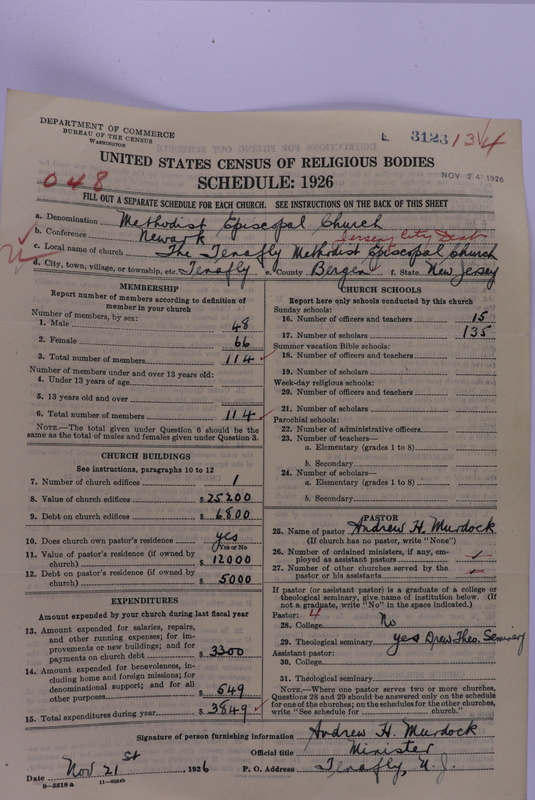 DEPARTMENT OF COMMERCE
BUREAU OF THE CENSUS
WASHINGTON
3123 1314
UNITED STATES CENSUS OF RELIGIOUS BODIES
NOV 24 1926
048
SCHEDULE: 1926
FILL OUT A SEPARATE SCHEDULE FOR EACH CHURCH. SEE INSTRUCTIONS ON THE BACK OF THIS SHEET
a. Denomination Methodist Episcopal Church
b. Conference Newark Jersey City Dist
c. Local name of church The Tenafly Methodist Episcopal Church
d. City, town, village, or township, etc. Tenafly e. County Bergen f. State New Jersey
MEMBERSHIP
Report number of members according to definition of
member in your church
Number of members, by sex:
1. Male 48
2. Female 66
3. Total number of members 114
Number of members under and over 13 years old:
4. Under 13 years of age
5. 13 years old and over
6. Total number of members 114
NOTE.—The total given under Question 6 should be the
same as the total of males and females given under Question 3.
CHURCH BUILDINGS
See instructions, paragraphs 10 to 12
7. Number of church edifices 1
8. Value of church edifices $ 25200
9. Debt on church edifices $ 6800
10. Does church own pastor's residence yes
Yes or No
11. Value of pastor's residence (if owned by
church) $ 12000
12. Debt on pastor's residence (if owned by
church) $ 5000
EXPENDITURES
Amount expended by your church during last fiscal year
13. Amount expended for salaries, repairs,
and other running expenses; for im-
provements or new buildings; and for
payments on church debt $ 3300
14. Amount expended for benevolences, in-
cluding home and foreign missions; for
denominational support; and for all
other purposes $ 549
15. Total expenditures during year $ 3849
CHURCH SCHOOLS
Report here only schools conducted by this church
Sunday schools:
16. Number of officers and teachers 15
17. Number of scholars 135
Summer vacation Bible schools:
18. Number of officers and teachers
19. Number of scholars
Week-day religious schools:
20. Number of officers and teachers
21. Number of scholars
Parochial schools:
22. Number of administrative officers
23. Number of teachers—
a. Elementary (grades 1 to 8)
b. Secondary
24. Number of scholars—
a. Elementary (grades 1 to 8)
b. Secondary
PASTOR
25. Name of pastor Andrew H. Murdock
(If church has no pastor, write "None")
26. Number of ordained ministers, if any, em-
ployed as assistant pastors
27. Number of other churches served by the
pastor or his assistants
If pastor (or assistant pastor) is a graduate of a college or
theological seminary, give name of institution below. (If
not a graduate, write "No" in the space indicated.)
Pastor: 4
28. College No
29. Theological seminary yes Drew Theo. Seminary
Assistant pastor:
30. College
31. Theological seminary
NOTE.—Where one pastor serves two or more churches,
Questions 28 and 29 should be answered only on the schedule
for one of the churches; on the schedules for the other churches,
write "See schedule for church."
Signature of person furnishing information Andrew H. Murdock
Official title Minister
Date Nov 21st, 1926 P. O. Address Tenafly, N. J.